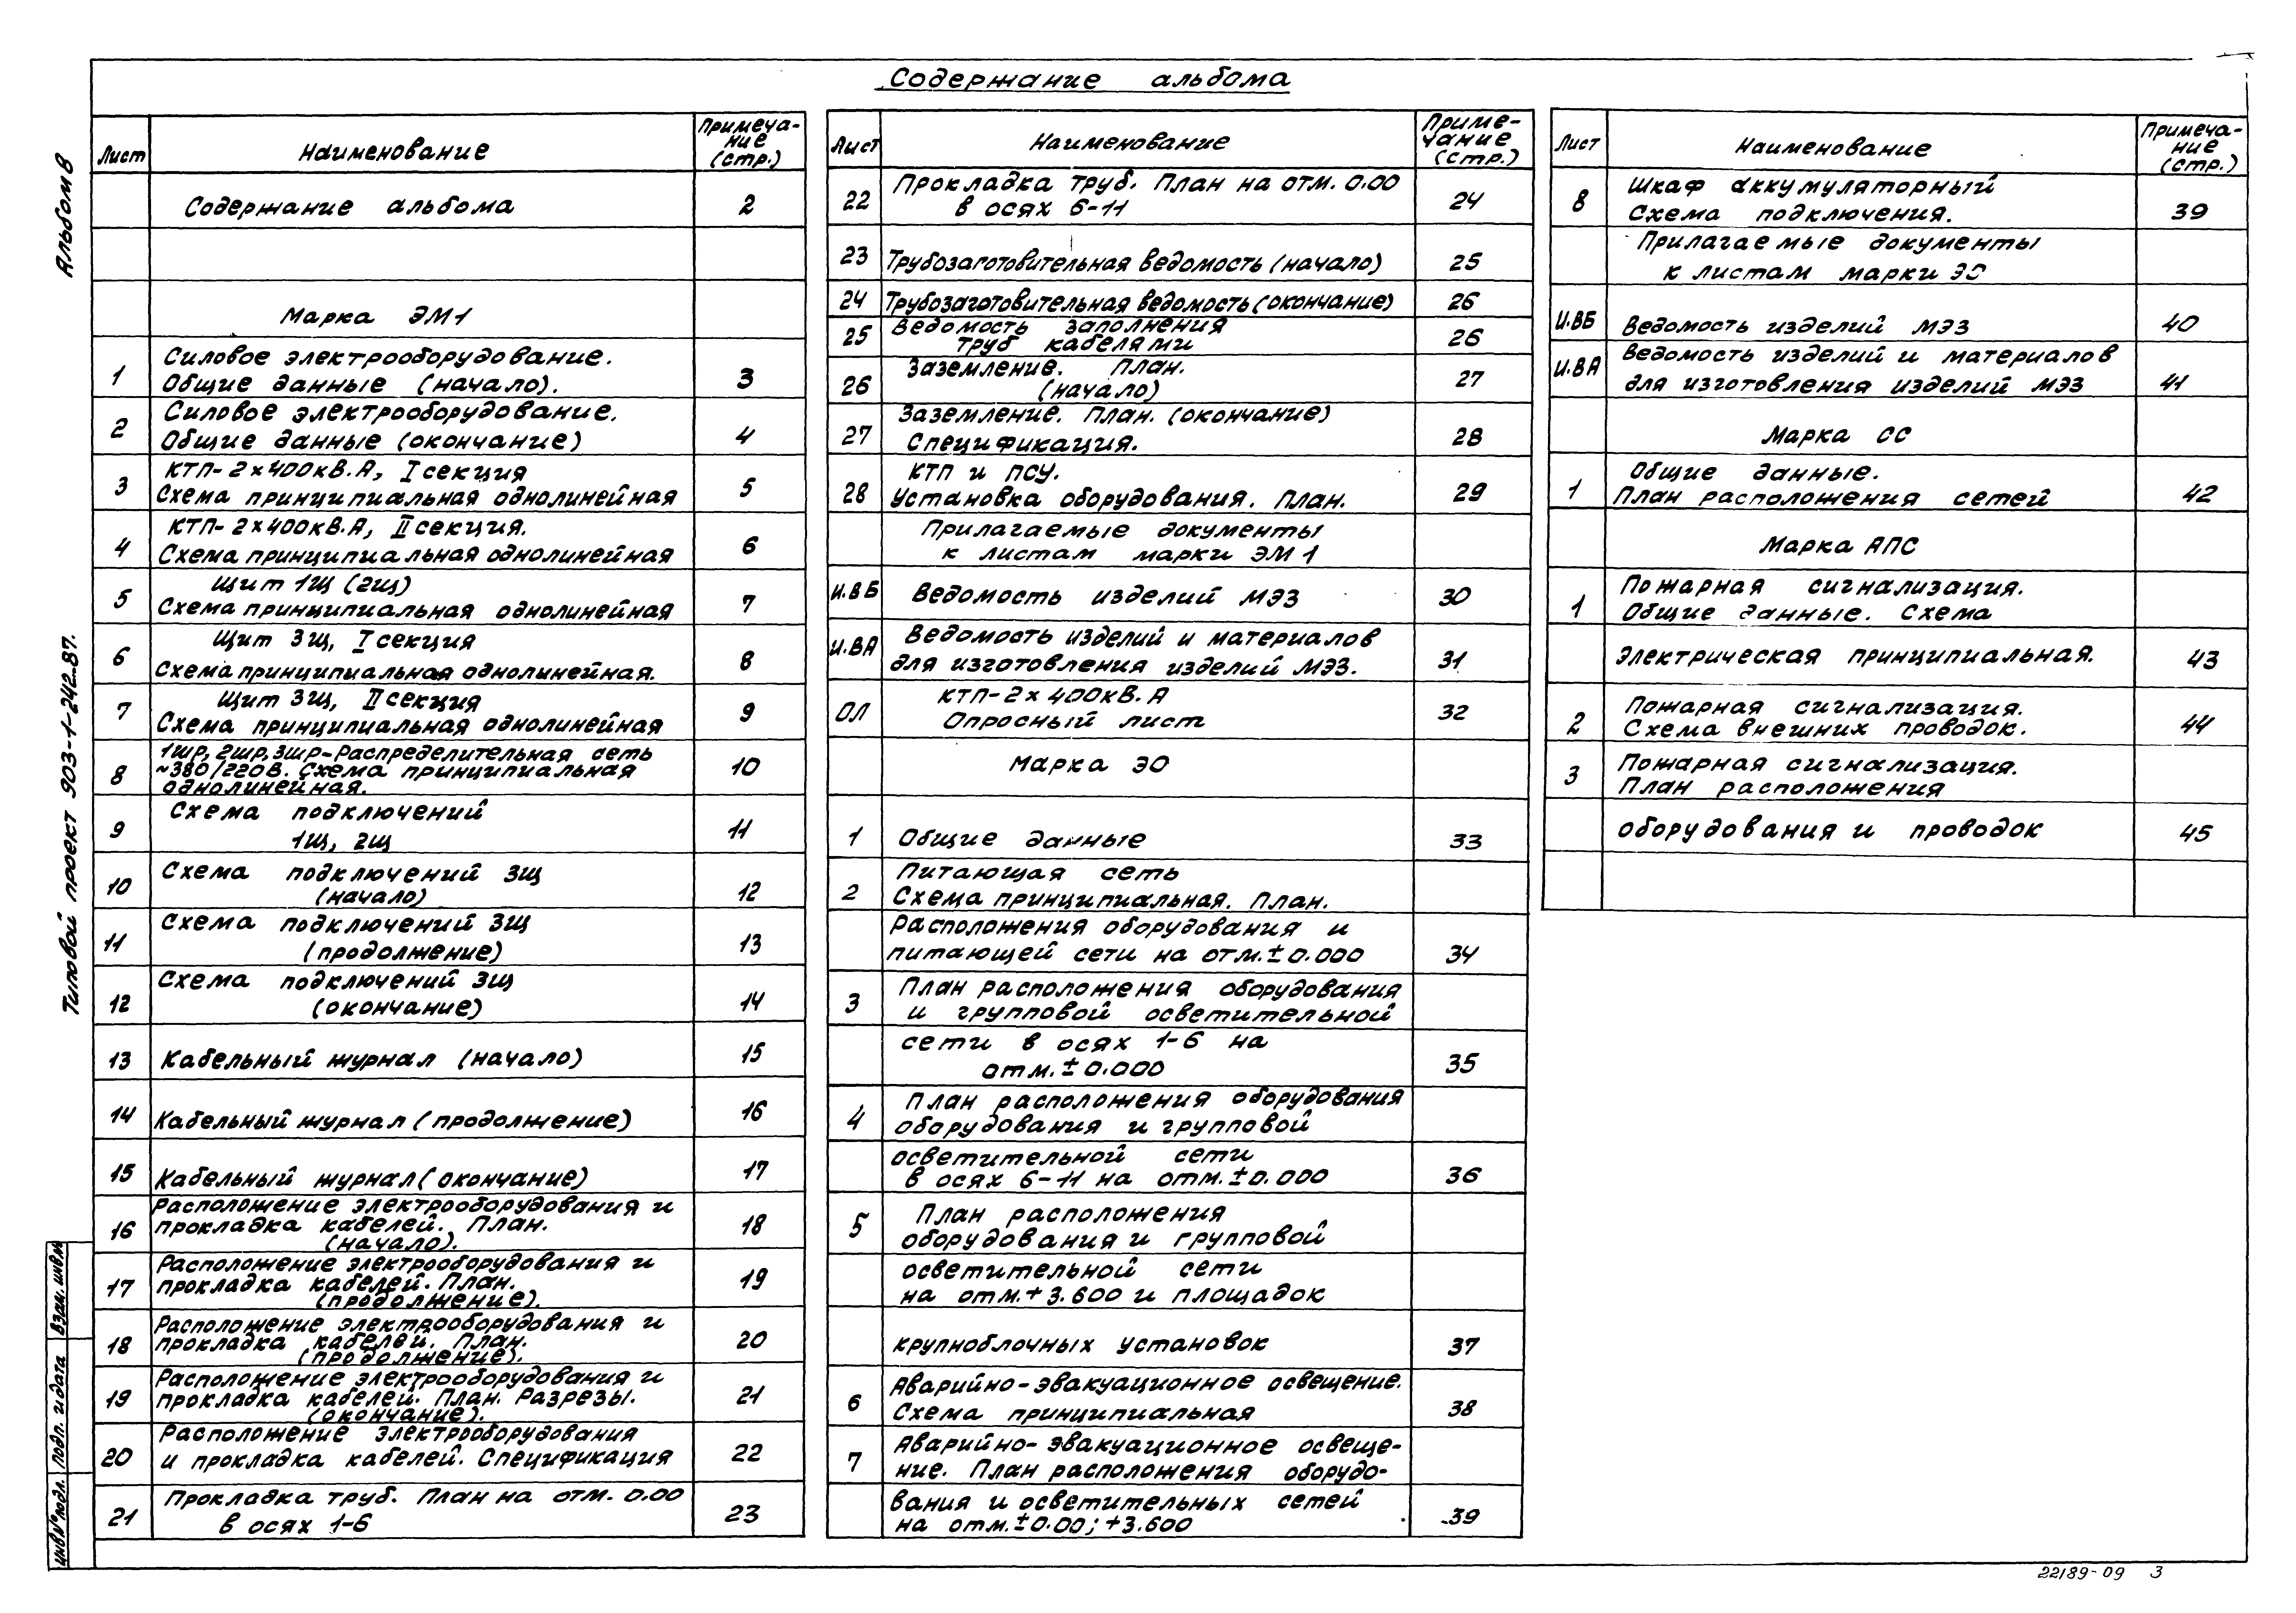 Содержание альбома
Альбом 8
Типовой проект 903-1-242.87.
Лист Наименование Примеча-
ние
(стр.)
Содержание альбома 2
Марка ЭМ1
1 Силовое электрооборудование.
Общие данные (начало). 3
2 Силовое электрооборудование.
Общие данные (окончание) 4
3 КТП-2×400кВ.А, I секция
Схема принципиальная однолинейная 5
4 КТП-2×400кВ.А, II секция.
Схема принципиальная однолинейная 6
5 Щит 1Щ (2Щ)
Схема принципиальная однолинейная 7
6 Щит 3Щ, I секция
Схема принципиальная однолинейная. 8
7 Щит 3Щ, II секция
Схема принципиальная однолинейная 9
8 1ШР, 2ШР, 3ШР-Распределительная сеть
~380/220В. Схема принципиальная
однолинейная. 10
9 Схема подключений
1Щ, 2Щ 11
10 Схема подключений 3Щ
(начало) 12
11 Схема подключений 3Щ
(продолжение) 13
12 Схема подключений 3Щ
(окончание) 14
13 Кабельный журнал (начало) 15
14 Кабельный журнал (продолжение) 16
15 Кабельный журнал (окончание) 17
16 Расположение электрооборудования и
прокладка кабелей. План.
(начало). 18
17 Расположение электрооборудования и
прокладка кабелей. План.
(продолжение). 19
18 Расположение электрооборудования и
прокладка кабелей. План.
(продолжение). 20
19 Расположение электрооборудования и
прокладка кабелей. План. Разрезы.
(окончание). 21
20 Расположение электрооборудования
и прокладка кабелей. Спецификация 22
21 Прокладка труб. План на отм. 0.00
в осях 1-6 23
Лист Наименование Приме-
чание
(стр.)
22 Прокладка труб. План на отм. 0.00
в осях 6-11 24
23 Трубозаготовительная ведомость (начало) 25
24 Трубозаготовительная ведомость (окончание) 26
25 Ведомость заполнения
труб кабелями 26
26 Заземление. План.
(начало) 27
27 Заземление. План. (окончание)
Спецификация. 28
28 КТП и ПСУ.
Установка оборудования. План. 29
Прилагаемые документы
к листам марки ЭМ1
И.ВБ Ведомость изделий МЭЗ 30
И.ВА Ведомость изделий и материалов
для изготовления изделий МЭЗ. 31
ОЛ КТП-2×400кВ.А
Опросный лист 32
Марка ЭО
1 Общие данные 33
2 Питающая сеть
Схема принципиальная. План.
расположения оборудования и
питающей сети на отм.±0.000 34
3 План расположения оборудования
и групповой осветительной
сети в осях 1-6 на
отм.±0.000 35
4 План расположения оборудования
оборудования и групповой
осветительной сети
в осях 6-11 на отм.±0.000 36
5 План расположения
оборудования и групповой
осветительной сети
на отм.+3.600 и площадок
крупноблочных установок 37
6 Аварийно-эвакуационное освещение.
Схема принципиальная 38
7 Аварийно-эвакуационное освеще-
ние. План расположения оборудо-
вания и осветительных сетей
на отм.±0.00; +3.600 39
Лист Наименование Примеча-
ние
(стр.)
8 Шкаф аккумуляторный
Схема подключения. 39
Прилагаемые документы
к листам марки ЭО
И.ВБ Ведомость изделий МЭЗ 40
И.ВА Ведомость изделий и материалов
для изготовления изделий МЭЗ 41
Марка СС
1 Общие данные.
План расположения сетей 42
Марка АПС
1 Пожарная сигнализация.
Общие данные. Схема
электрическая принципиальная. 43
2 Пожарная сигнализация.
Схема внешних проводок. 44
3 Пожарная сигнализация.
План расположения
оборудования и проводок 45
Инв№подл. Подп. и дата Взам. инв.№
22189-09 3